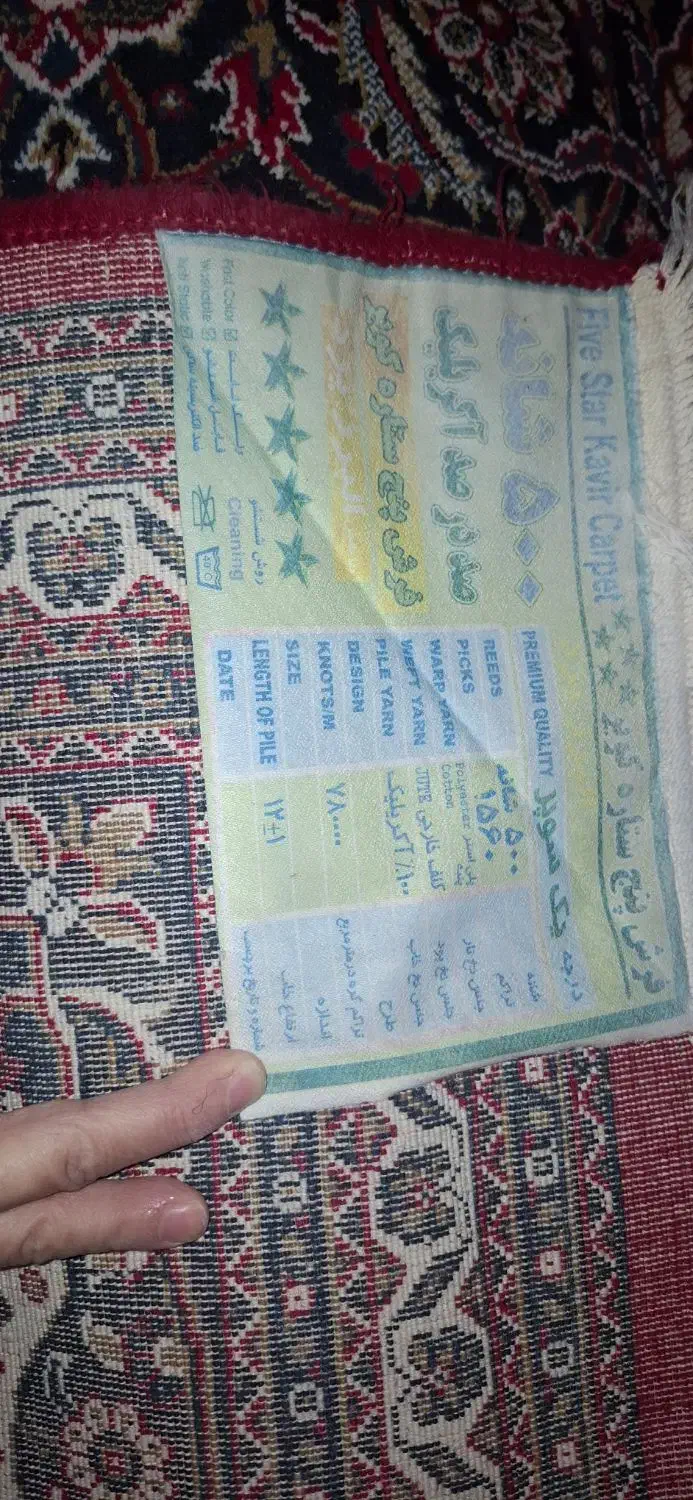 Five Star Kavir Carpet
فرش پنج ستاره کویر
۵۰۰ شانه
صد در صد آکریلیک
فرش پنج ستاره کویر
Fast Color
Washable
قابل شستشو
روش شستشو
Cleaning
40°C
PREMIUM QUALITY یک سوپر درجه
REEDS ۵۰۰ شانه شانه
PICKS ۱۵۶۰ تراکم
WARP YARN Polyester Cotton پلی استر پنبه جنس نخ تار
WEFT YARN JUTE کنف خارجی جنس نخ پود
PILE YARN ۱۰۰٪ آکریلیک جنس نخ خاب
DESIGN طرح
KNOTS/M ۷۸۰۰۰۰ تراکم گره در متر مربع
SIZE اندازه
LENGTH OF PILE ۱۲±۱ ارتفاع خاب
DATE شماره و تاریخ برچسب